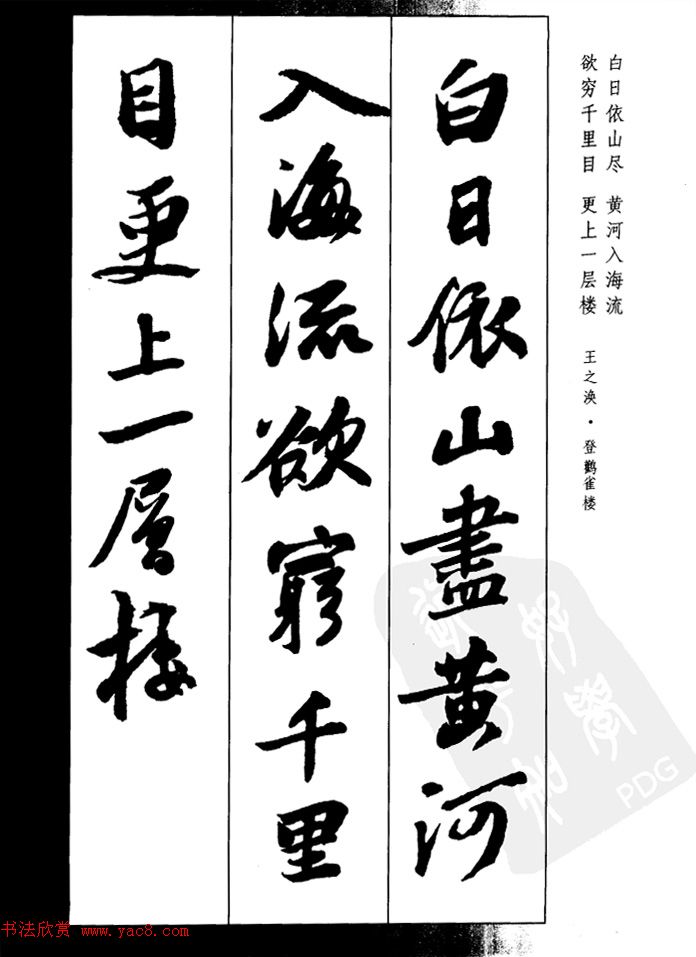 白日依山尽 黄河入海流
欲穷千里目 更上一层楼 王之涣·登鹳雀楼
白日依山盡黄河
入海流欲窮千里
目更上一層楼
PDG
书法欣赏 www.yac8.com